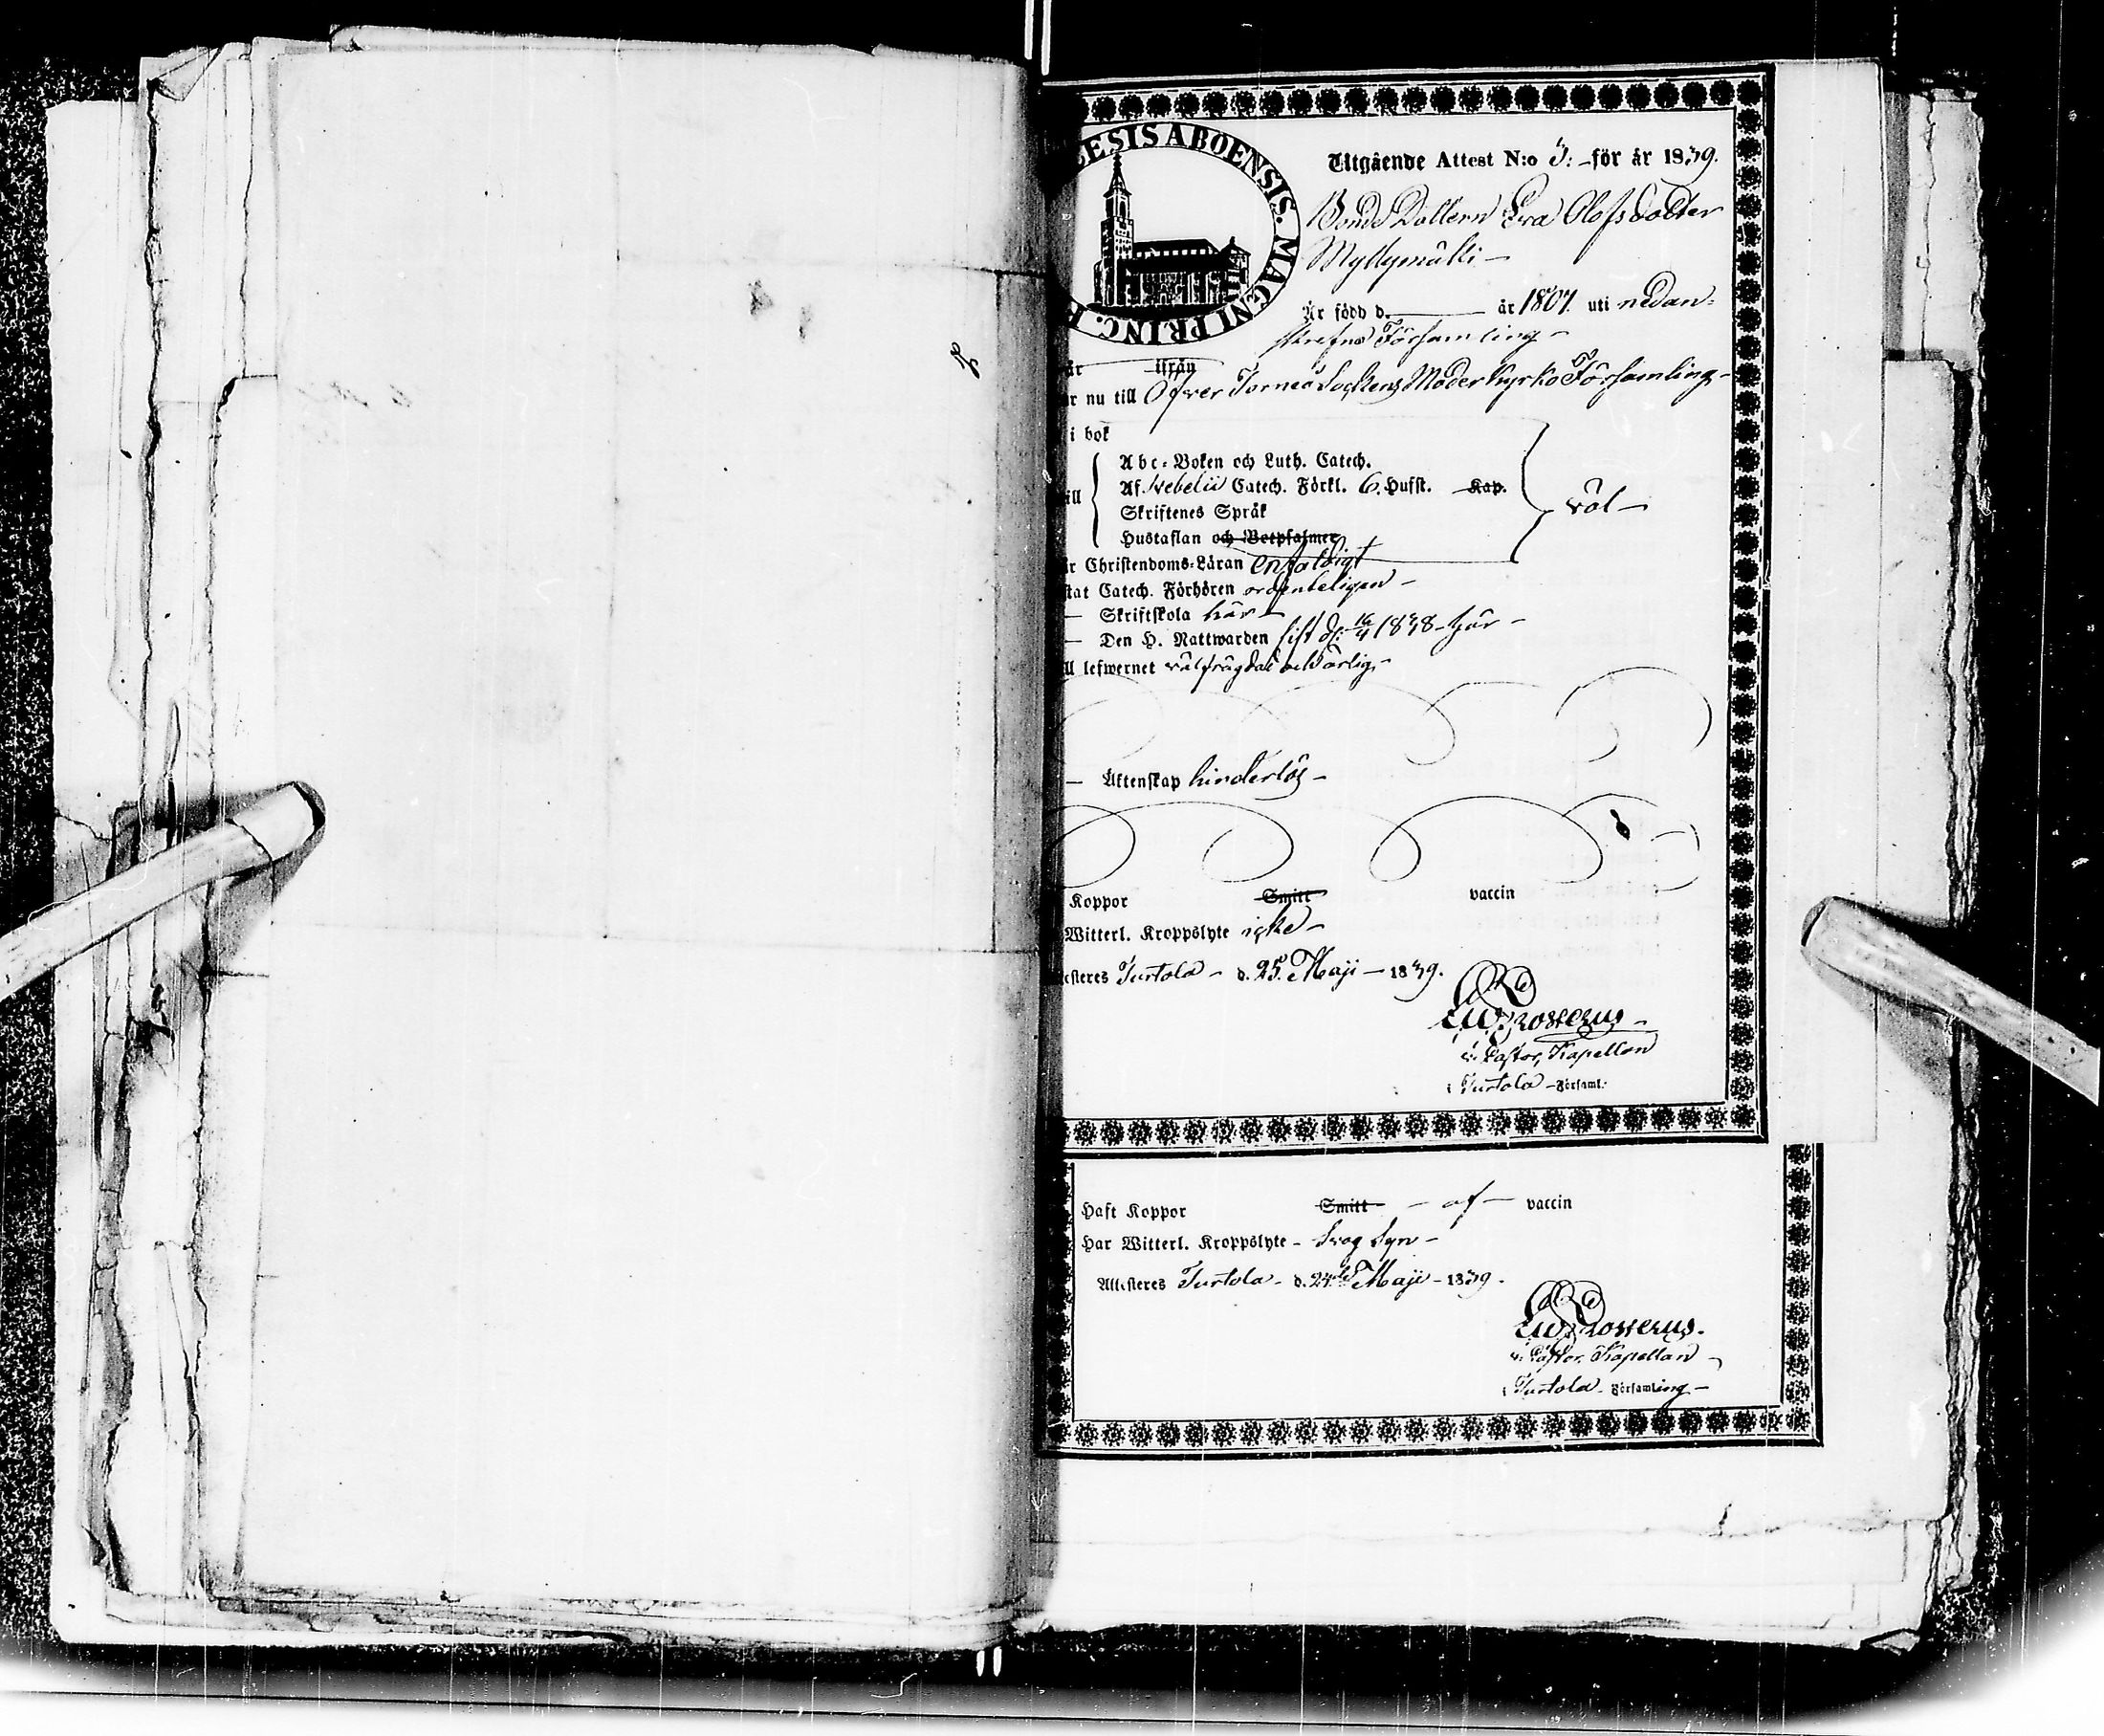 ESIS ABOENSIS. MAGNI PRINC.
Utgående Attest N:o 3. för år 1839.
Bonde Dottern Eva Olofsdotter
Myllymäki
Är född d. — år 1807. uti nedan-
skrefna Församling
ifrån
r nu till Öfver Torneå Sockens Moderkyrko Församling
i bok
Abc-Boken och Luth. Catech.
Af Svebelii Catech. Förkl. 6. Hufst. Kap.
Skriftenes Språk
väl
Hustaflan och Botpsalmer
r Christendoms-Läran enfaldigt
tat Catech. Förhören ordenteligen
Skriftskola här
Den H. Nattwarden sist d. 16/4 1838 här
ll lefwernet välfrägdad och ärlig
Äktenskap hinderlös
Koppor Smitt vaccin
Witterl. Kroppslyte icke
esteres Turtola d. 25. Maji 1839.
v. Pastor, Kapellan
i Turtola Församl.
Haft Koppor Smitt af vaccin
Har Witterl. Kroppslyte Svag Syn
Attesteres Turtola d. 24de Maji 1839.
v. Pastor, Kapellan
i Turtola Församling